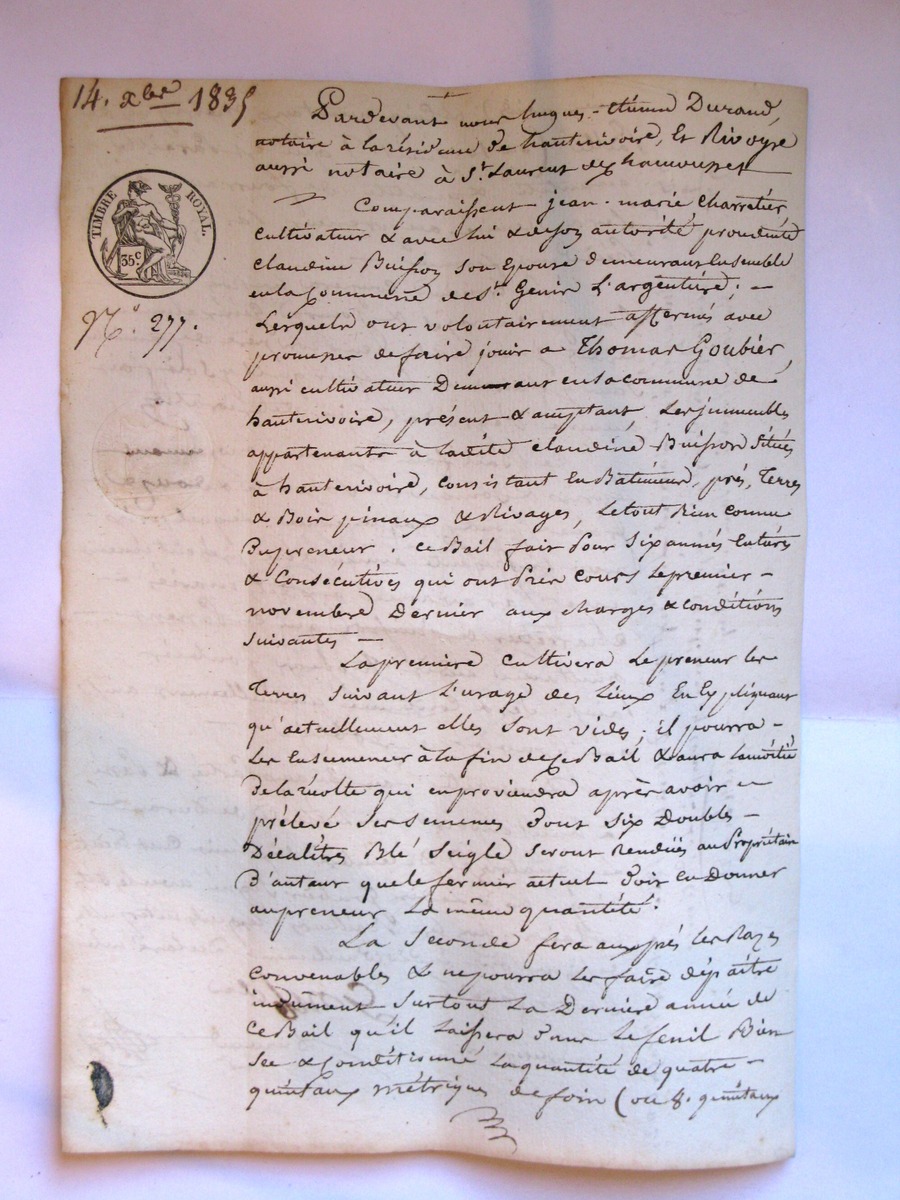 14. xbre 1835
Pardevant nous hugues-étienne Durand,
notaire à la résidence de hauterivoire, Et Rivoyre
aussi notaire à St. Laurent de chamousset
TIMBRE ROYAL.
35c
N.° 277.
Comparaissent jean-marie Charretier
cultivateur & avec lui & de son autorité procédante
claudine Buisson son épouse demeurans Ensemble
en la Commune de St. Genis L'argentière; —
Lesquels ont volontairement affermés avec
promesses de faire jouir a Thomas Goubier,
aussi cultivateur Demeurant en la commune de
hauterivoire, présent & acceptant, Les jmmeubles
appartenants à ladite claudine Buisson Situés
à hauterivoire, consistant En Batiment, prés, Terres
& Bois pinaux & Rivages, Le tout Bien connu
Du preneur. Ce Bail fait Pour Six années Entières
& Consécutives qui ont Pris Cours Le premier —
novembre Dernier aux charges & conditions
suivantes —
La premiere cultivera Le preneur les
Terres suivant L'usage des Lieux En Expliquant
qu'actuellement elles sont vides; il pourra —
Les Ensemencer à la fin de ce Bail & aura La moitié
De la récolte qui en proviendra après avoir —
prélevé Ses semences Dont Six Doubles —
Décalitres Blé Seigle seront Rendües au Propriétaire
D'autant que le fermier actuel Doit En Donner
au preneur La même quantité.
La seconde fera aux prés les Razes
convenables & ne pourra les faire dépaître
indument surtout La Dernière année de
Ce Bail qu'il Laissera Dans Le fenil Bien
Sec & Conditionné La quantité de quatre —
quintaux métriques de foin (ou 8. quintaux